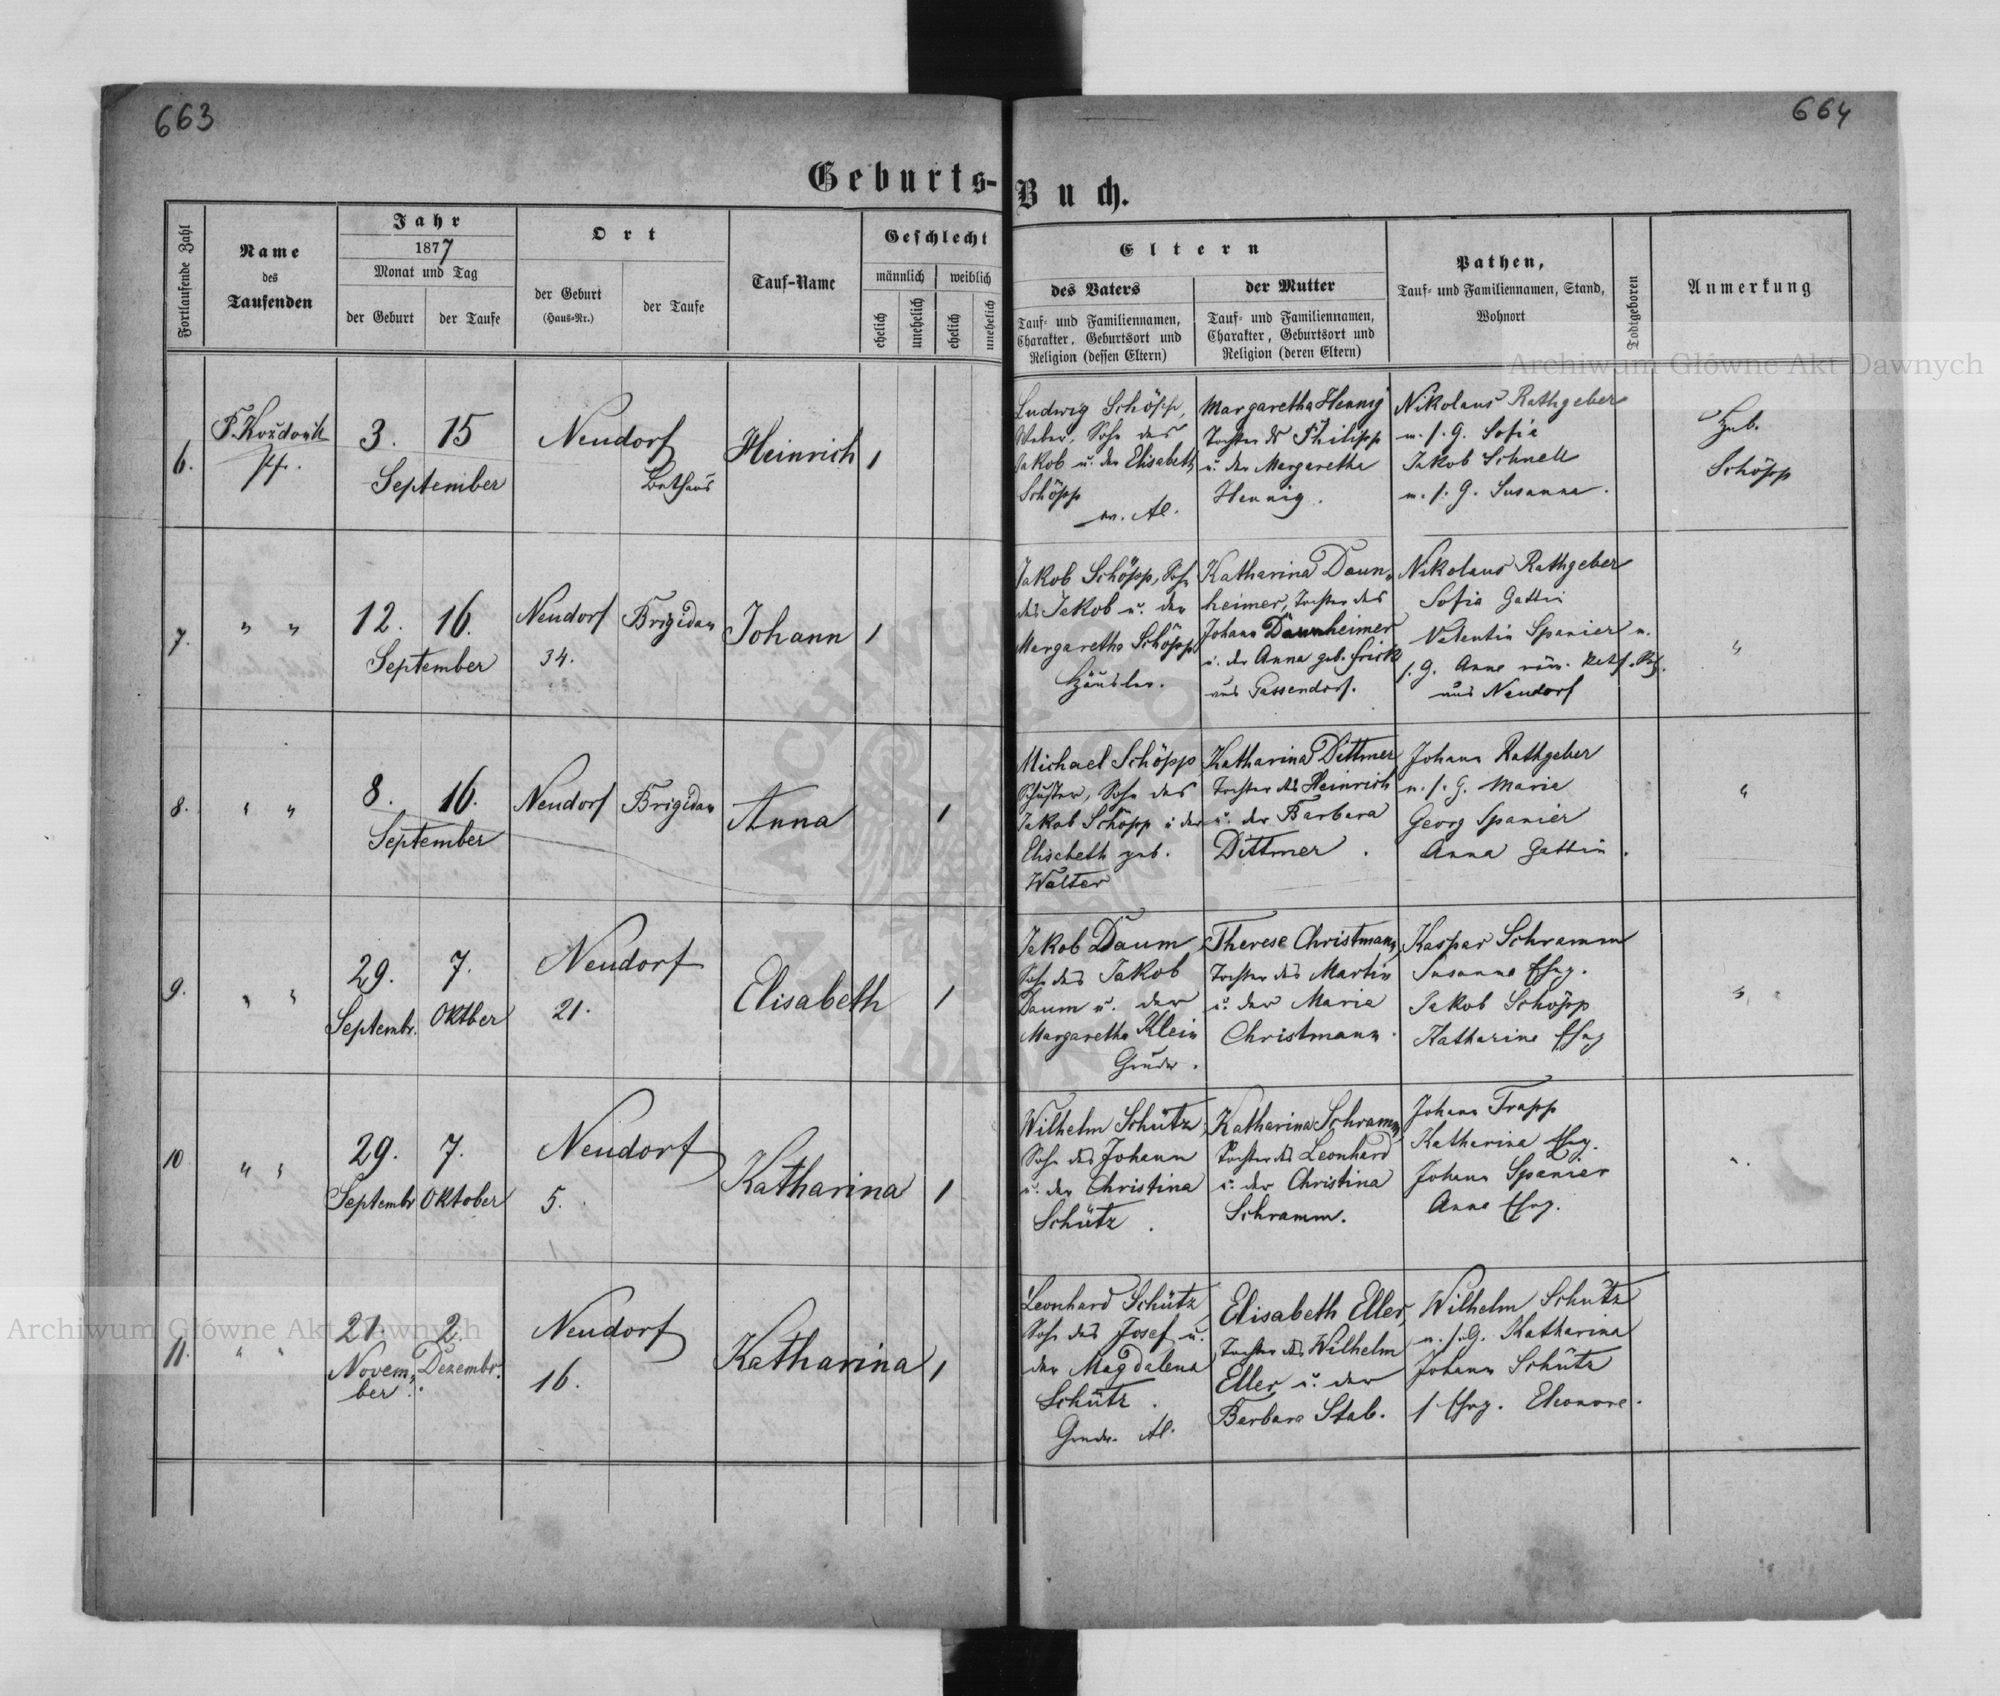 663
664
Geburts-Buch.
Fortlaufende Zahl
Name
des
Taufenden
Jahr
1877
Monat und Tag
der Geburt
der Taufe
Ort
der Geburt
(Haus-Nr.)
der Taufe
Tauf-Name
Geschlecht
männlich
weiblich
ehelich
unehelich
ehelich
unehelich
Eltern
des Vaters
Tauf- und Familiennamen,
Charakter, Geburtsort und
Religion (dessen Eltern)
der Mutter
Tauf- und Familiennamen,
Charakter, Geburtsort und
Religion (deren Eltern)
Pathen,
Tauf- und Familiennamen, Stand,
Wohnort
Todtgeboren
Anmerkung
6.
3. 15
September
Neudorf
Bethaus
Heinrich
1
Ludwig Schöpp,
Weber, Sohn des
Jakob u. der Elisabeth
Schöpp
Margaretha Hennig
Tochter des Philipp
u. der Margaretha
Hennig.
Nikolaus Rathgeber
u. s. G. Sofia
Jakob Schnell
u. s. G. Susanna.
Heb.
Schöpp
7. " "
12. 16.
September
Neudorf
34.
Brigidau
Johann
1
Jakob Schöpp, Sohn
des Jakob u. der
Margaretha Schöpp
Häusler.
Katharina Daun-
heimer, Tochter des
Johann Daunheimer
u. der Anna geb. Frick
aus Gassendorf.
Nikolaus Rathgeber
Sofia Gattin
Valentin Spanier u.
s. G. Anna röm. kath.
aus Neudorf
"
8. " "
8. 16.
September
Neudorf
Brigidau
Anna
1
Michael Schöpp
Schuster, Sohn des
Jakob Schöpp u der
Elisabeth geb.
Walter
Katharina Dittmer
Tochter des Heinrich
u. der Barbara
Dittmer.
Johann Rathgeber
u. s. G. Maria
Georg Spanier
Anna Gattin.
"
9. " "
29. 7.
Septembr. Oktber
Neudorf
21.
Elisabeth
1
Jakob Daum,
Sohn des Jakob
Daum u. der
Margaretha Klein
Grundw.
Therese Christmann,
Tochter des Martin
u. der Maria
Christmann.
Kaspar Schramm
Susanna Ehg.
Jakob Schöpp
Katharina Ehg
"
10 " "
29. 7.
Septembr Oktober
Neudorf
5.
Katharina
1
Wilhelm Schütz,
Sohn des Johann
u. der Christina
Schütz.
Katharina Schramm,
Tochter des Leonhard
u. der Christina
Schramm.
Johann Trapp
Katharina Ehg.
Johann Spanier
Anna Ehg.
"
11. " "
21. 2.
Novem- Dezembr.
ber
Neudorf
16.
Katharina
1
Leonhard Schütz
Sohn des Josef u.
der Magdalena
Schütz.
Grundw.
Elisabeth Eller,
Tochter des Wilhelm
Eller u. der
Barbara Stab.
Wilhelm Schütz
u. s. G. Katharina
Johann Schütz
s Ehg. Eleonore.
Archiwum Główne Akt Dawnych
Archiwum Główne Akt Dawnych